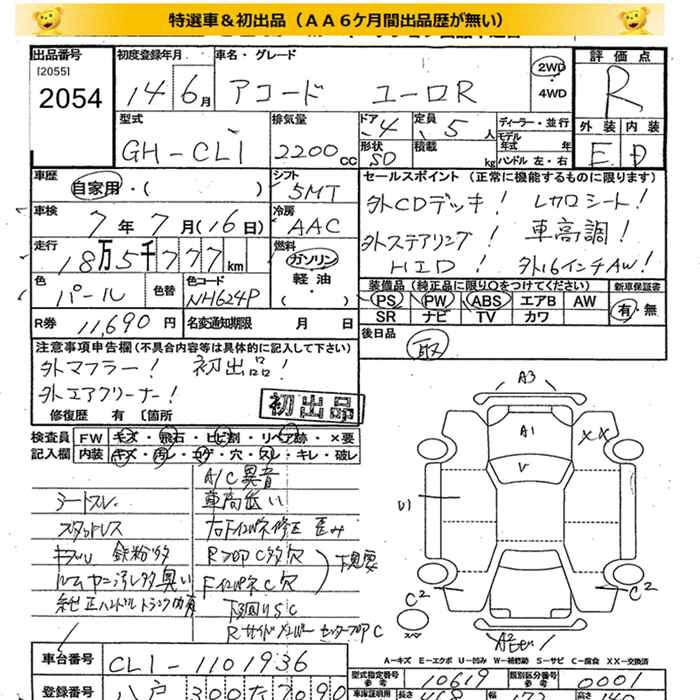 特選車＆初出品（ＡＡ６ケ月間出品歴が無い）
出品番号
[2055]
2054
初度登録年月
14年6月
車名・グレード
アコード ユーロR
2WD
4WD
評価点
R
外装 内装
E D
型式
GH-CL1
排気量
2200cc
ドア 4
形状 SD
定員 5人
積載 kg
ディーラー・並行
モデル年式 年
ハンドル 左・右
車歴
自家用・( )
シフト
5MT
セールスポイント（正常に機能するものに限ります）
外CDデッキ! レカロシート!
外ステアリング! 車高調!
HID! 外16インチAW!
車検
7年7月(16日)
冷房
AAC
走行
18万5千777km
燃料
ガソリン
軽油
・( )
色
パール
色替
色コード
NH624P
装備品（純正品に限り○をつけてください）
新車保証書
PS PW ABS エアB AW
SR ナビ TV カワ
有・無
R券 11,690円
名変通知期限 月 日
後日品
取
注意事項申告欄（不具合内容等は具体的に記入して下さい）
外マフラー! 初出品!
外エアクリーナー!
初出品
修復歴 有 〔箇所
検査員記入欄
FW キズ・飛石・ヒビ割・リペア跡・×要
内装 キズ・汚レ・コゲ・穴・スレ・キレ・破レ
A/C異音
シートスレ 車高低い
スタッドレス 右Fインパネ修正 歪み
キズU 鉄粉多 Rフロア C多穴
ルームヤニ汚レ多臭い Fインパネ C穴
下見要
純正ハンドルトランク内有 下回りSC
Rサイドメンバー センターフロア C
A3
A1
XX
V
U1
C2
C2
スペア
A-キズ E-エクボ U-凹み W-補修跡 S-サビ C-腐食 XX-交換済
車台番号
CL1-1101936
型式指定番号
参考
10619
類別区分番号
参考
0001
登録番号
八戸 300
車庫証明用
長さ